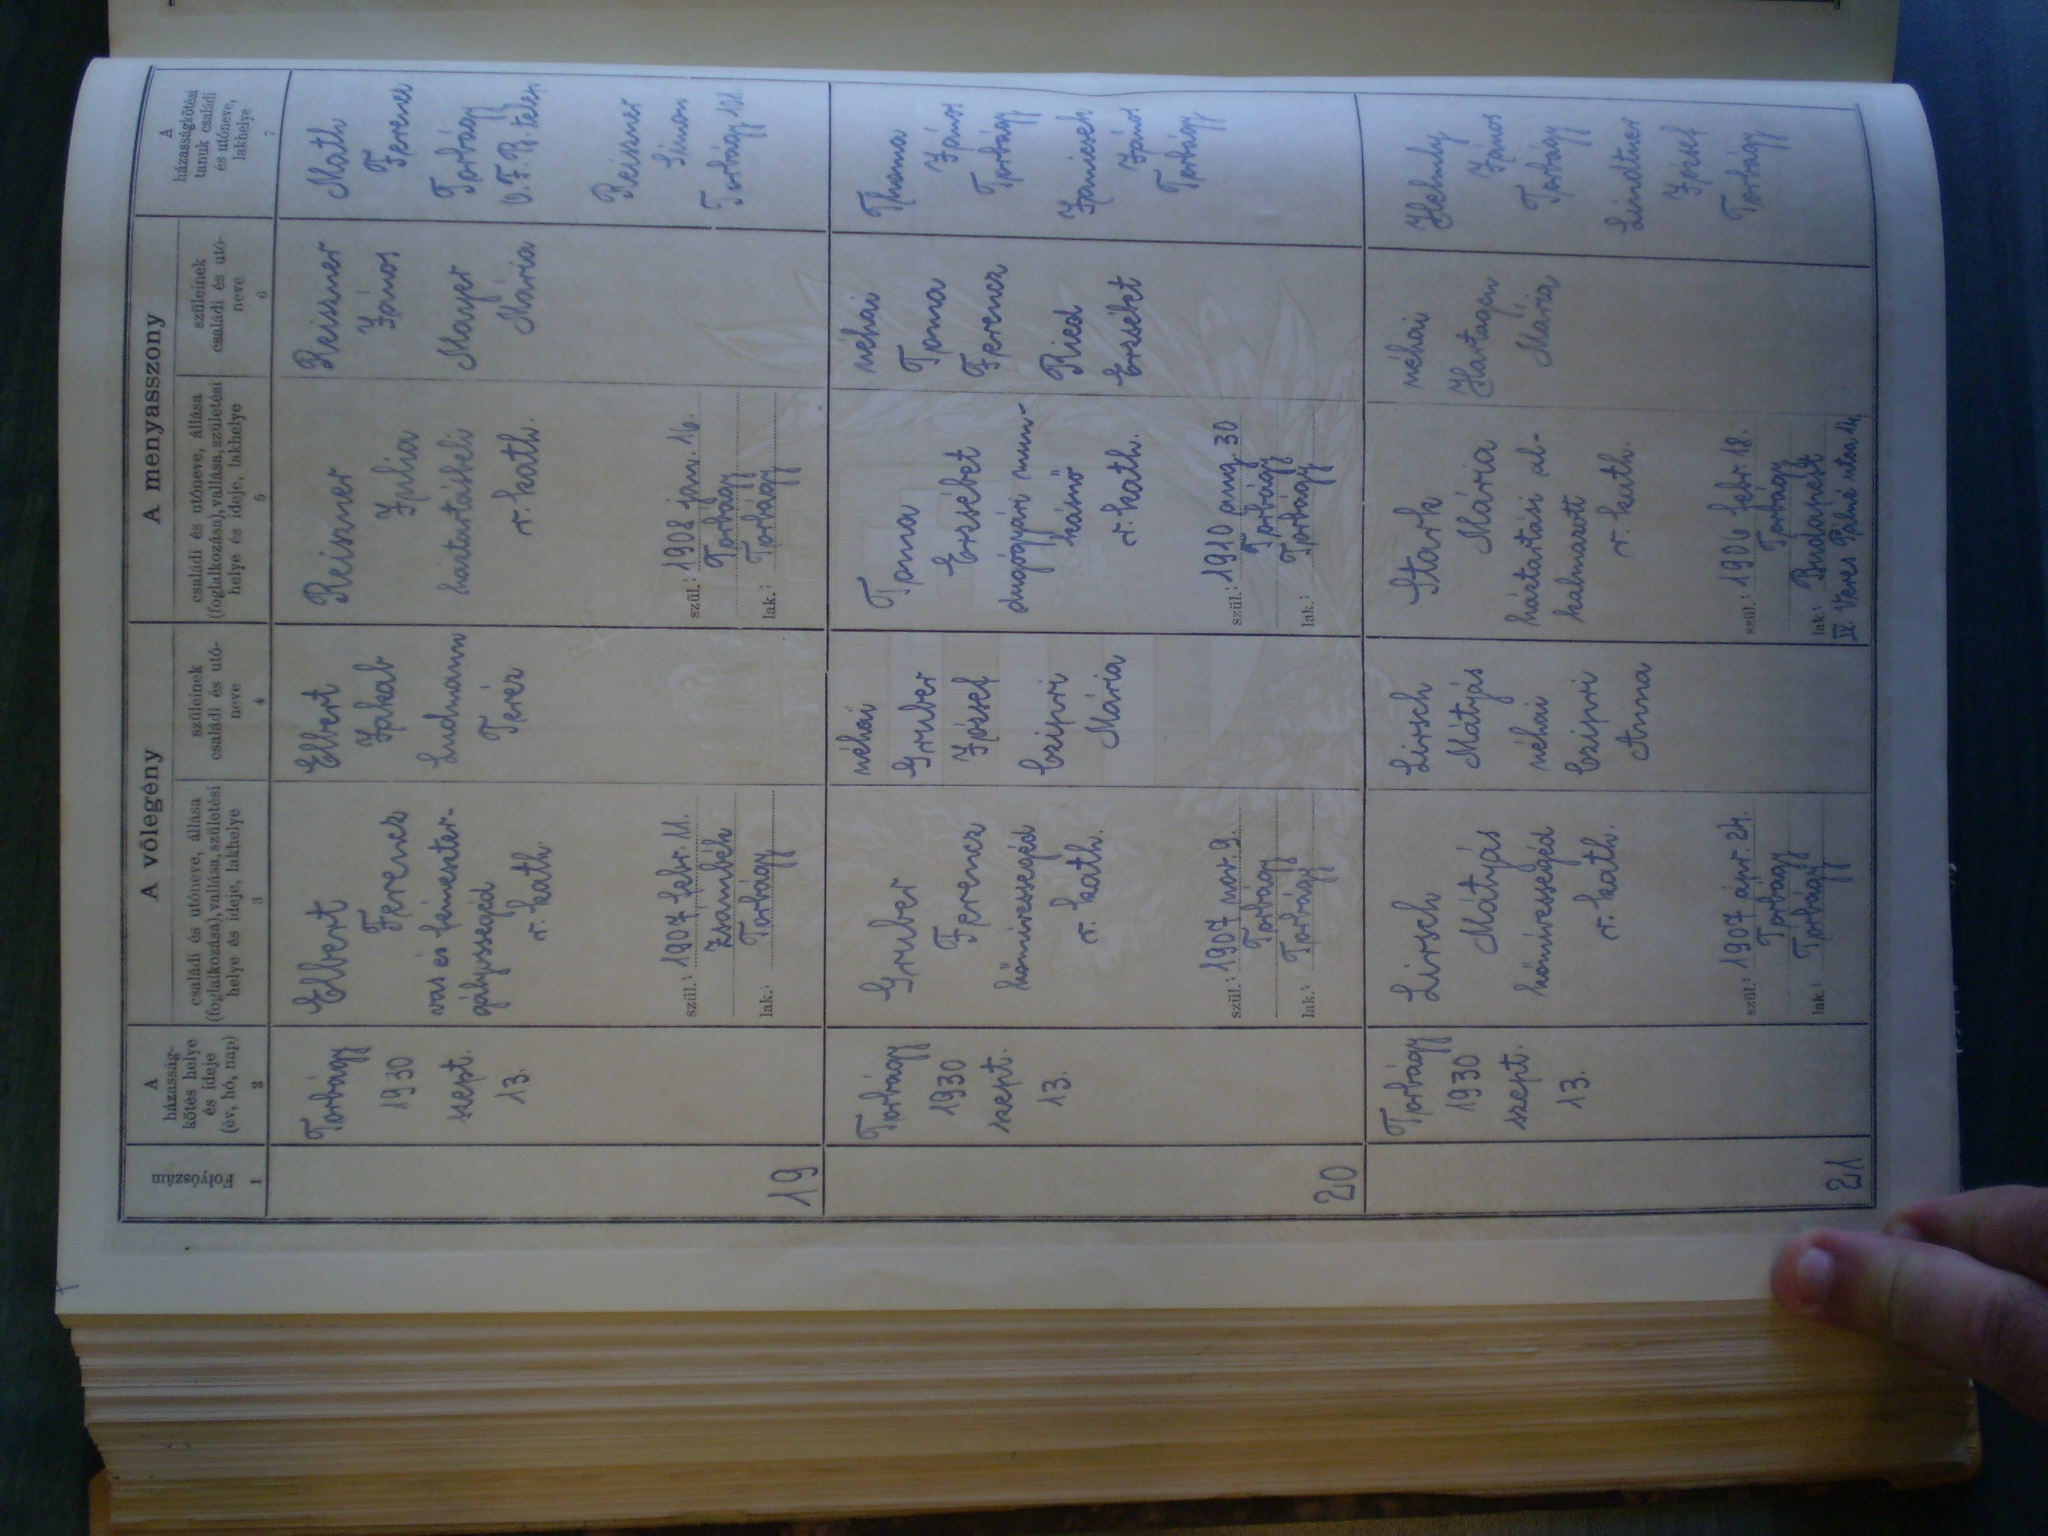 Folyószám
1
A
házasság-
kötés helye
és ideje
(év, hó, nap)
2
A vőlegény
családi és utóneve, állása
(foglalkozása), vallása, születési
helye és ideje, lakhelye
3
szüleinek
családi és utó-
neve
4
A menyasszony
családi és utóneve, állása
(foglalkozása), vallása, születési
helye és ideje, lakhelye
5
szüleinek
családi és utó-
neve
6
A
házasságkötési
tanuk családi
és utóneve,
lakhelye
7
19
Torbágy
1930
szept.
13.
Elbert
Ferencz
vas és fémeszter-
gályossegéd
r. kath.
szül.: 1907 febr. 11.
Zsámbék
lak.: Torbágy
Elbert
Jakab
Ludmann
Teréz
Reiszner
Julia
háztartásbeli
r. kath.
szül.: 1908 jan. 16.
Torbágy
lak.: Torbágy
Reiszner
János
Mayer
Mária
Math
Ferencz
Torbágy
Reiszner
Simon
Torbágy 101.
20
Torbágy
1930
szept.
13.
Gruber
Ferencz
kőművessegéd
r. kath.
szül.: 1907 nov. 9.
Torbágy
lak.: Torbágy
néhai
Gruber
József
Czipri
Mária
Toma
Erzsébet
dugógyári mun-
kásnő
r. kath.
szül.: 1910 aug. 30
Torbágy
lak.: Torbágy
néhai
Toma
Ferencz
Ried
Erzsébet
Thoma
János
Torbágy
János
Torbágy
21
Torbágy
1930
szept.
13.
Lirsch
Mátyás
kőművessegéd
r. kath.
szül.: 1907 ápr. 24.
Torbágy
lak.: Torbágy
Lirsch
Mátyás
néhai
Czipri
Anna
Stark
Mária
háztartási al-
kalmazott
r. kath.
szül.: 1906 febr. 18.
Torbágy
lak.: Budapest
IV. Veres Pálné utca 14.
néhai
Hartagen
Mária
János
Torbágy
Lindtner
József
Torbágy